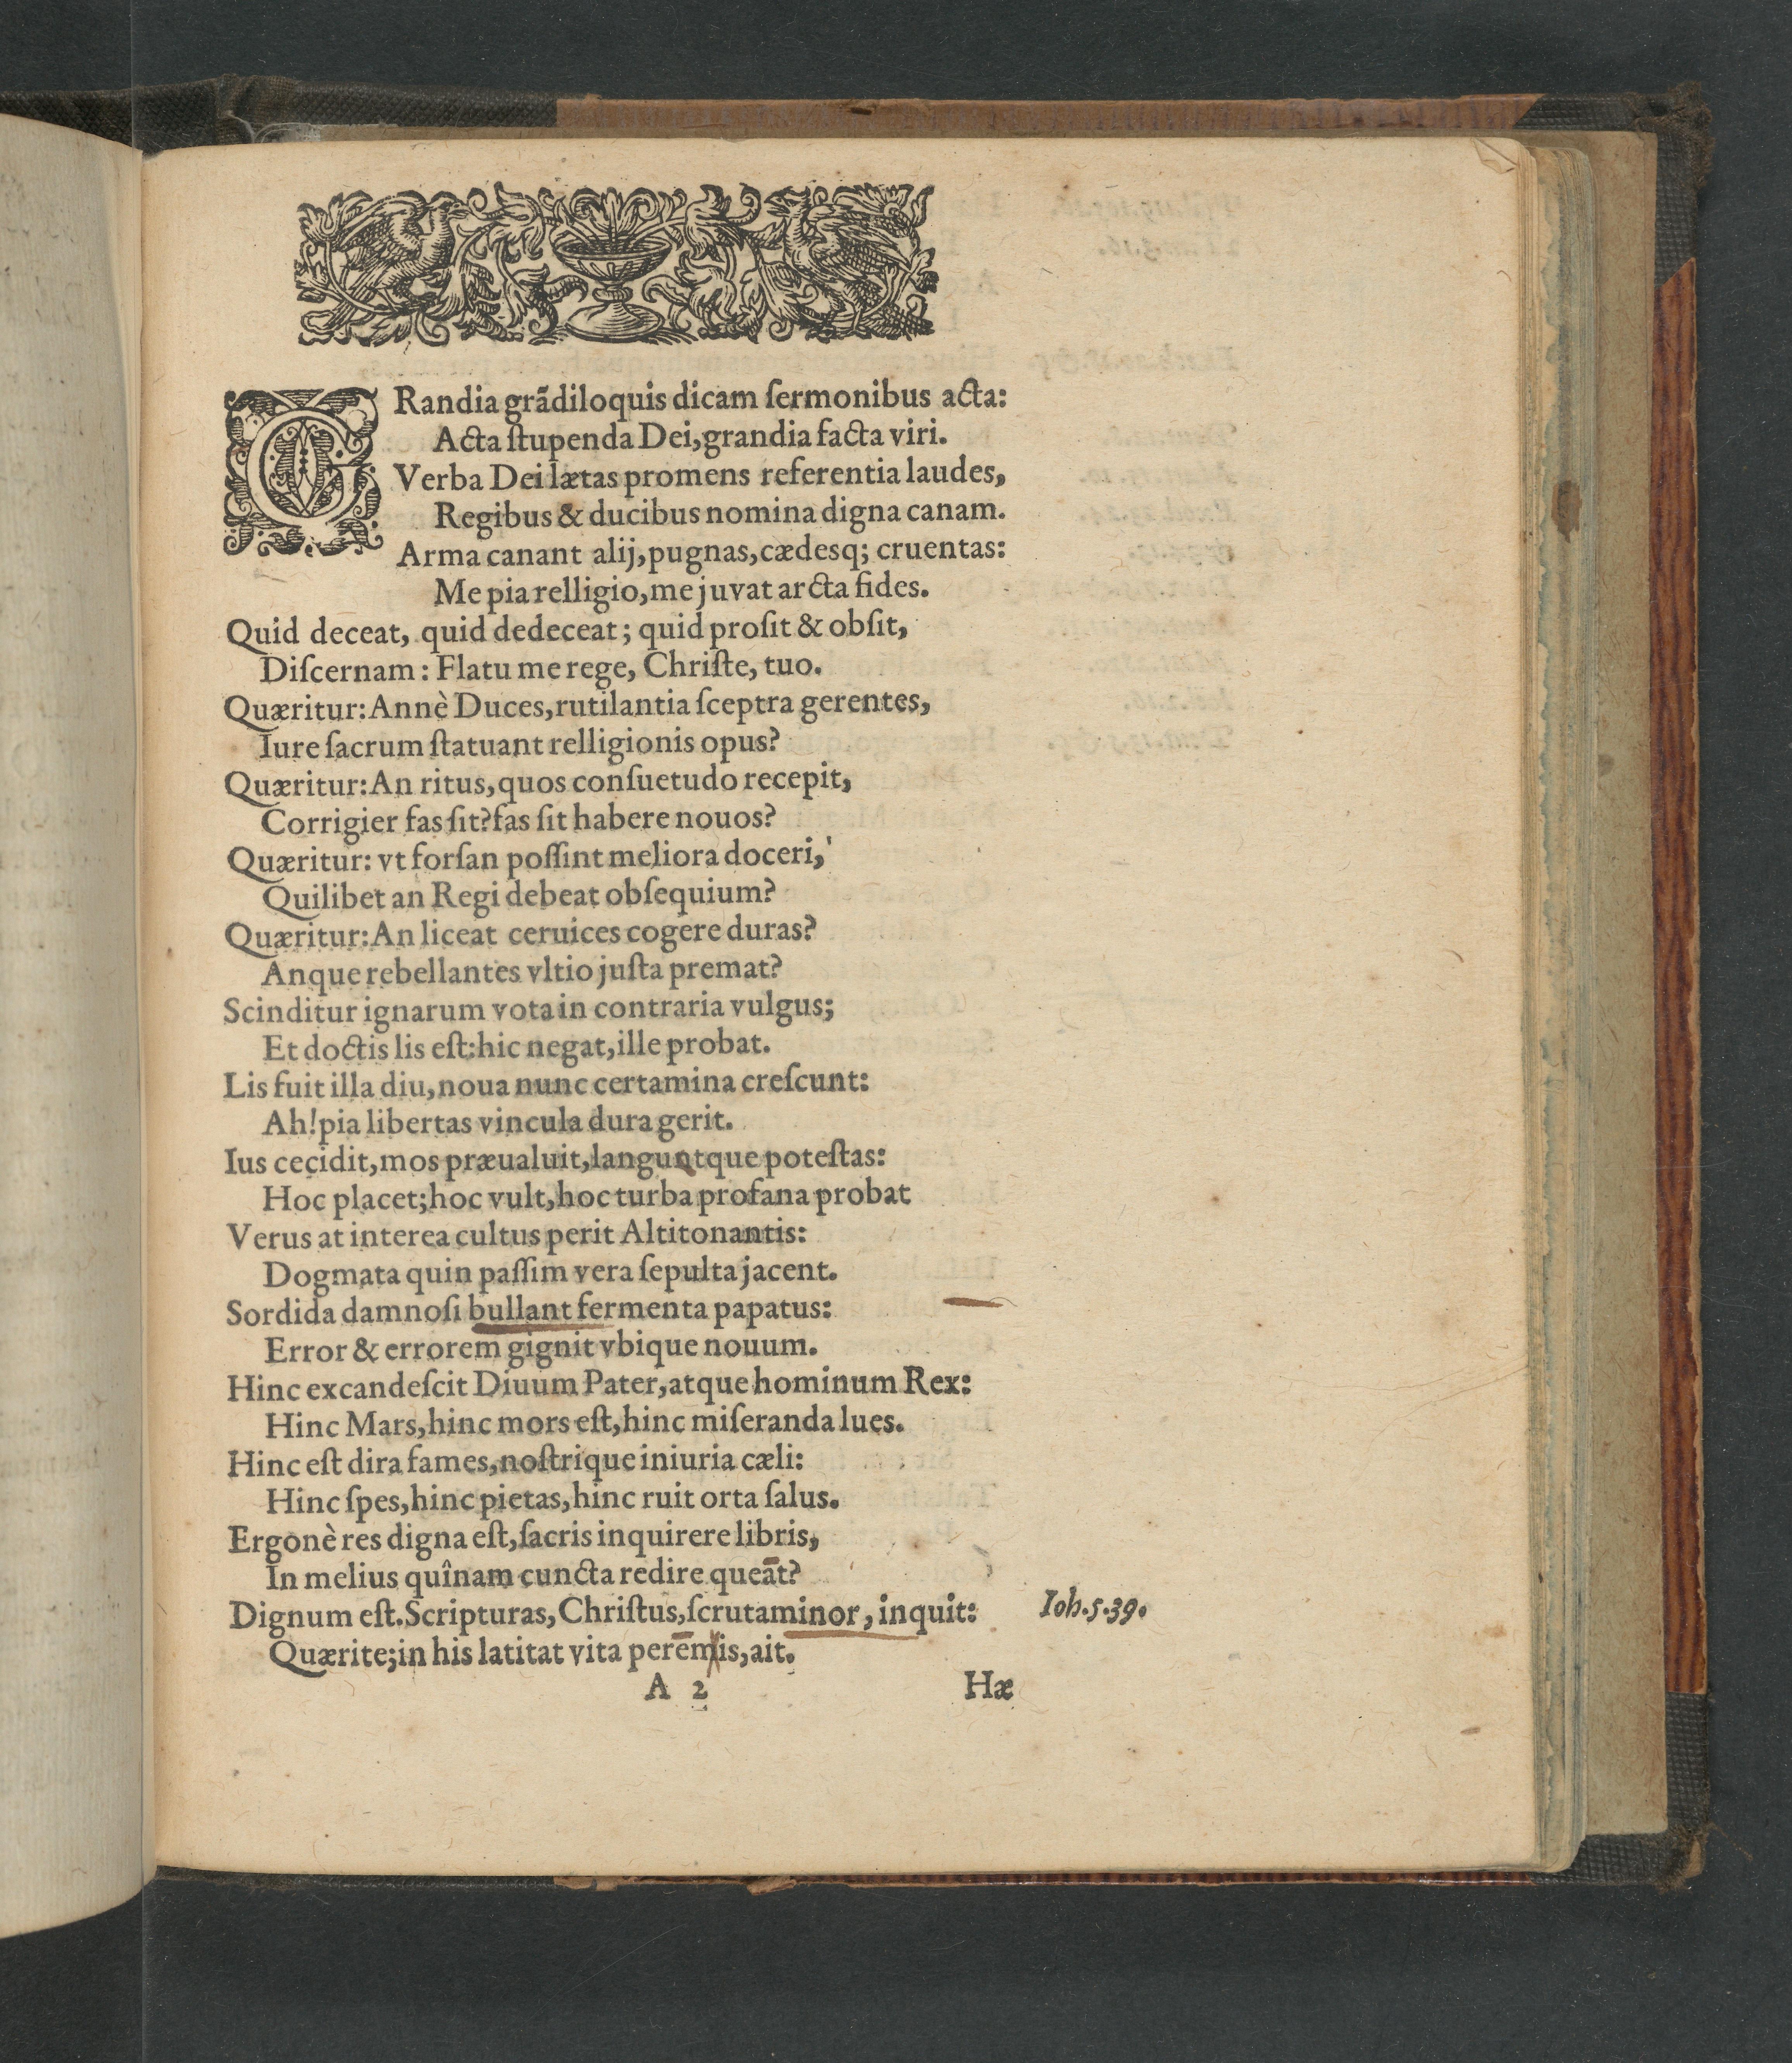 GRandia grãdiloquis dicam ſermonibus acta:
Acta ſtupenda Dei, grandia facta viri.
Verba Dei lætas promens referentia laudes,
Regibus & ducibus nomina digna canam.
Arma canant alij, pugnas, cædesq; cruentas:
Me pia relligio, me juvat arcta fides.
Quid deceat, quid dedeceat; quid proſit & obſit,
Diſcernam: Flatu me rege, Chriſte, tuo.
Quæritur: Annè Duces, rutilantia ſceptra gerentes,
Iure ſacrum ſtatuant relligionis opus?
Quæritur: An ritus, quos conſuetudo recepit,
Corrigier fas ſit? fas ſit habere nouos?
Quæritur: vt forſan poſſint meliora doceri,
Quilibet an Regi debeat obſequium?
Quæritur: An liceat ceruices cogere duras?
Anque rebellantes vltio juſta premat?
Scinditur ignarum vota in contraria vulgus;
Et doctis lis eſt: hic negat, ille probat.
Lis fuit illa diu, noua nunc certamina creſcunt:
Ah! pia libertas vincula dura gerit.
Ius cecidit, mos præualuit, languntque poteſtas:
Hoc placet; hoc vult, hoc turba profana probat
Verus at interea cultus perit Altitonantis:
Dogmata quin paſſim vera ſepulta jacent.
Sordida damnoſi bullant fermenta papatus:
Error & errorem gignit vbique nouum.
Hinc excandeſcit Diuum Pater, atque hominum Rex:
Hinc Mars, hinc mors eſt, hinc miſeranda lues.
Hinc eſt dira fames, noſtrique iniuria cæli:
Hinc ſpes, hinc pietas, hinc ruit orta ſalus.
Ergonè res digna eſt, ſacris inquirere libris,
In melius quînam cuncta redire queāt?
Dignum eſt. Scripturas, Chriſtus, ſcrutaminor, inquit: Ioh. 5. 39.
Quærite; in his latitat vita perēmis, ait.
A 2 Hæ